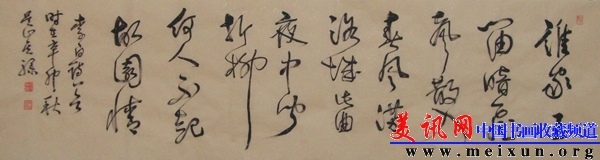 誰家玉
笛暗飛
聲散入
春風滿
洛城此曲
夜中聞
折柳
何人不起
故園情
李白詩
时在辛卯秋
美讯网 中国书画收藏频道
www.meixun.org